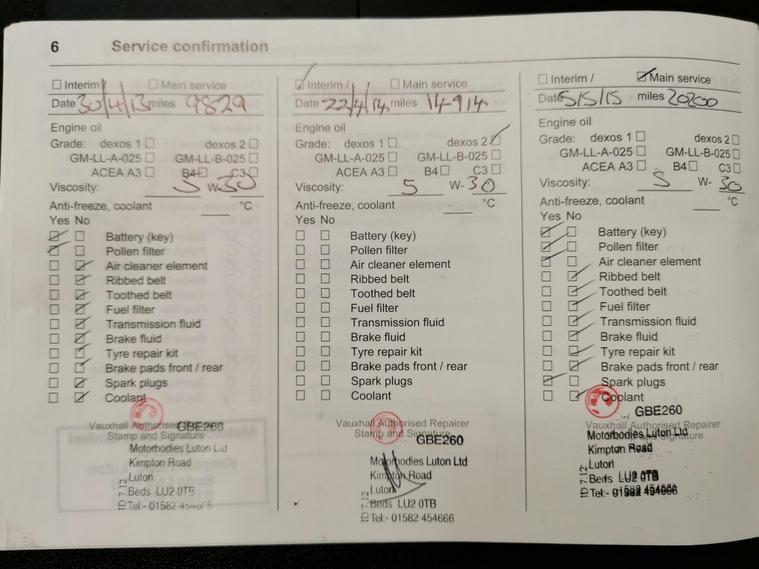 6 Service confirmation
Interim / Main service
Date 30/4/13 miles 9829
Engine oil
Grade: dexos 1 dexos 2
GM-LL-A-025 GM-LL-B-025
ACEA A3 B4 C3
Viscosity: 5 W-30
Anti-freeze, coolant °C
Yes No
Battery (key)
Pollen filter
Air cleaner element
Ribbed belt
Toothed belt
Fuel filter
Transmission fluid
Brake fluid
Tyre repair kit
Brake pads front / rear
Spark plugs
Coolant
Vauxhall Authorised GBE260
Stamp and Signature
Motorbodies Luton Ltd
Kimpton Road
Luton
Beds LU2 0TB
Tel:- 01582
ID 7.12
Interim / Main service
Date 22/4/14 miles 14914
Engine oil
Grade: dexos 1 dexos 2
GM-LL-A-025 GM-LL-B-025
ACEA A3 B4 C3
Viscosity: 5 W-30
Anti-freeze, coolant °C
Yes No
Battery (key)
Pollen filter
Air cleaner element
Ribbed belt
Toothed belt
Fuel filter
Transmission fluid
Brake fluid
Tyre repair kit
Brake pads front / rear
Spark plugs
Coolant
Vauxhall Authorised Repairer
Stamp and Signature GBE260
Motorbodies Luton Ltd
Kimpton Road
Luton
Beds LU2 0TB
Tel:- 01582 454666
ID 7.12
Interim / Main service
Date 5/5/15 miles 20200
Engine oil
Grade: dexos 1 dexos 2
GM-LL-A-025 GM-LL-B-025
ACEA A3 B4 C3
Viscosity: 5 W- 30
Anti-freeze, coolant °C
Yes No
Battery (key)
Pollen filter
Air cleaner element
Ribbed belt
Toothed belt
Fuel filter
Transmission fluid
Brake fluid
Tyre repair kit
Brake pads front / rear
Spark plugs
Coolant
GBE260
Vauxhall Authorised Repairer
Motorbodies Luton Ltd
Kimpton Road
Luton
Beds LU2 0TB
Tel:- 01582 454666
ID 7.12